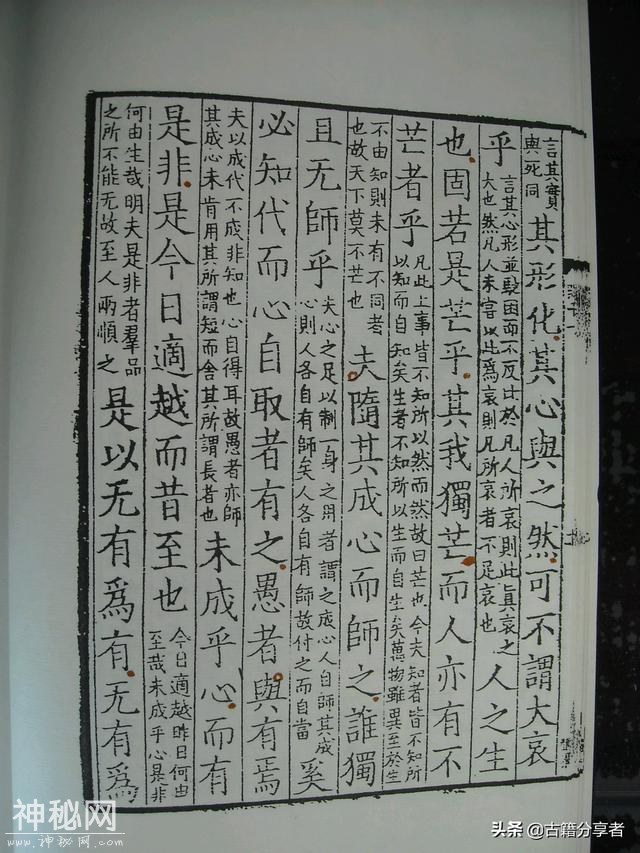 言其實
與死同
其形化其心與之然可不謂大哀
乎
言其心形並馳困而不反比於凡人所哀則此真哀之
大也然凡人未嘗以此爲哀則凡所哀者不足哀也
人之生
也固若是芒乎其我獨芒而人亦有不
芒者乎
凡此上事皆不知所以然而然故曰芒也今夫知者皆不知所
以知而自知矣生者不知所以生而自生矣萬物雖異至於生
不由知則未有不同者
也故天下莫不芒也
夫隨其成心而師之誰獨
且无師乎
夫心之足以制一身之用者謂之成心人自師其成
心則人各自有師矣人各自有師故付之而自當
奚
必知代而心自取者有之愚者與有焉
夫以成代不成非知也心自得耳故愚者亦師
其成心未肯用其所謂短而舍其所謂長者也
未成乎心而有
是非是今日適越而昔至也
今日適越昨日何由
至哉未成乎心是非
何由生哉明夫是非者羣品
之所不能无故至人兩順之
是以无有爲有无有爲
神秘网
www.神秘网.com
头条 @古籍分享者